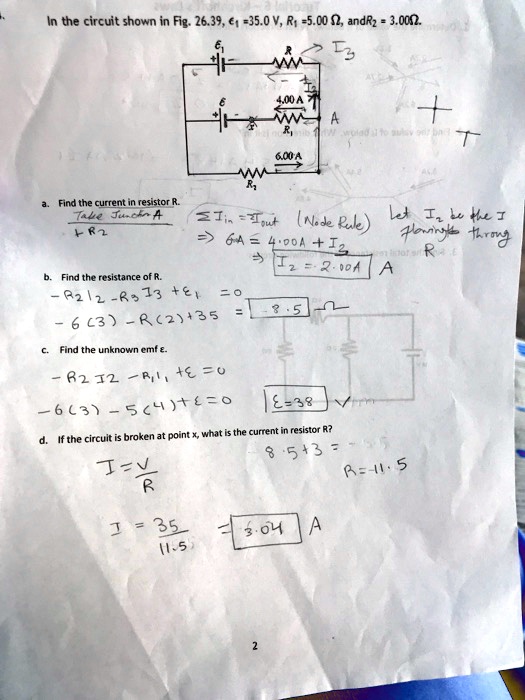 In the circuit shown in Fig. 26.39, ε₁ =35.0 V, R₁ =5.00 Ω, andR₂ = 3.00Ω.
ε₁
R
I₃
ε
4.00 A
A
R₁
6.00 A
R₂
a. Find the current in resistor R.
Take Junctn A
+ R2
ΣIin = Iout (Node Rule)
Let I₂ be the I
flowing through
R
=> 6A = 4.00A + I₂
=> I₂ = 2.00A A
b. Find the resistance of R.
- R2 I2 - R3 I3 + ε₁ = 0
- 6 (3) - R(2)+35 = 8.5 Ω
c. Find the unknown emf ε.
- R2 I2 - R₁I₁ +ε = 0
-6(3) - 5(4)+ε=0 ε=38 V
d. If the circuit is broken at point x, what is the current in resistor R?
8.5+3 =
I = V
R
R=11.5
I = 35 = 3.04 A
11.5
2